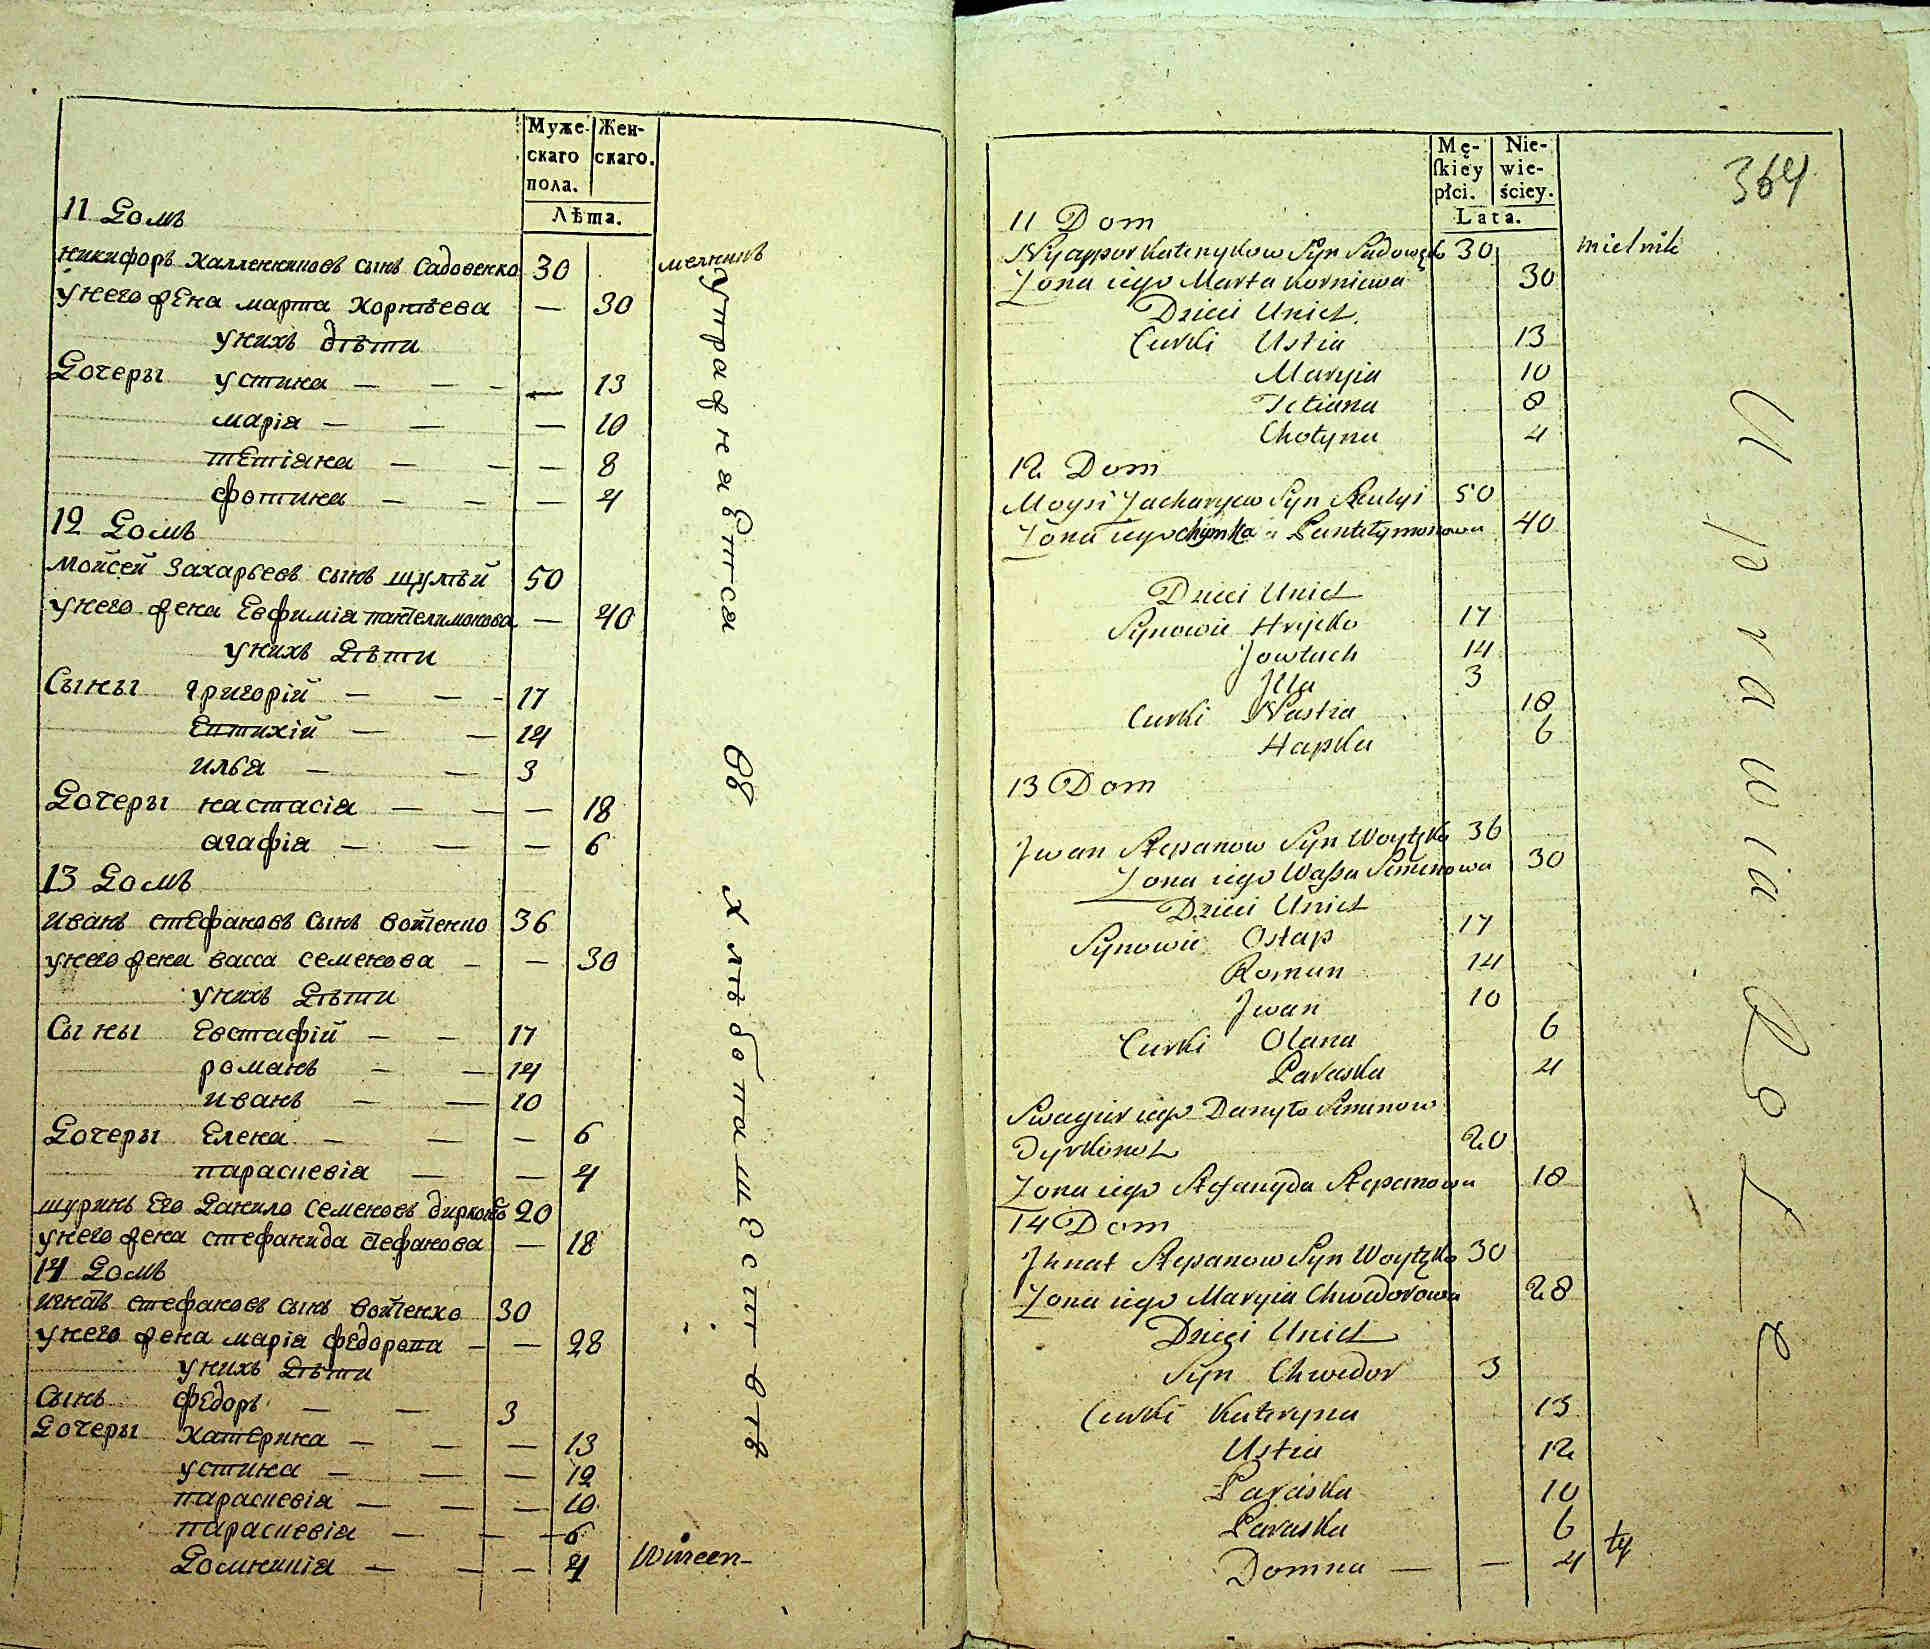 Муже- Жен-
скаго скаго.
пола.
Лѣта.
11 Домъ
никифоръ каллениковъ сынъ Садовенко 30 мелникъ
унего жена марта корнѣева — 30
унихъ дѣти
Дочеры устина — — — — 13
марія — — — 10
тетіана — — — 8
фотина — — — 4
12 Домъ
Мойсей Захарьевъ сынъ шулѣй 50
унего жена Евфимія пантелимонова — 40
унихъ Дѣти
Сыны григорій — — - 17
Евтихій — — 14
илья — — 3
Дочеры настасіа — — — 18
агафіа — — — 6
13 Домъ
иванъ стефановъ сынъ войтенко 36
унего жена васса семенова — — 30
унихъ Дѣти
Сыны Евстафій — — 17
романъ — — 14
иванъ — — 10
Дочеры Елена — — — 6
параскевіа — — 4
шуринъ Его Данило семеновъ 20
унего жена стефанида стефанова — 18
14 Домъ
игнатъ стефановъ сынъ войтенко 30
унего жена маріа федорова — — 28
унихъ Дѣти
Сынъ федоръ — — 3
Дочеры катерина — — 13
устина — — — 12
параскевіа — — — 10
параскевіа — — — 6
Домникіа — — — 4
упражнаѣтса въ хлѣбопашествѣ
Mę- Nie-
ſkiey wie-
płci. ściey.
Lata.
364
11 Dom
Syn 30 mielnik
Zona iego Marta Korniewa 30
Dzieci Unich
Curki Ustia 13
Maryia 10
Tetiana 8
Chotyna 4
12 Dom
Moysi Zacharyew Syn Szulyi 50
Zona iego chymka Pantelymonowa 40
Dzieci Unich
Synowie Hryćko 17
Jowtuch 14
Jlla 3
Curki Nastia 18
Hapka 6
13 Dom
Jwan Stepanow Syn Woytzko 36
Zona iego Waſsa Semenowa 30
Dzieci Unich
Synowie Ostap 17
Roman 14
Jwan 10
Curki Olana 6
Paraska 4
Swagier iego Danyło Semenow
20
Zona iego Stefanyda Stepanowa 18
14 Dom
Jhnat Stepanow Syn Woytzko 30
Zona iego Maryia Chwedorowa 28
Dzieci Unich
Syn Chwedor 3
Curki Kateryna 13
Ustia 12
Paraska 10
Paraska 6
Domna — — 4
ty
Uprawia Role